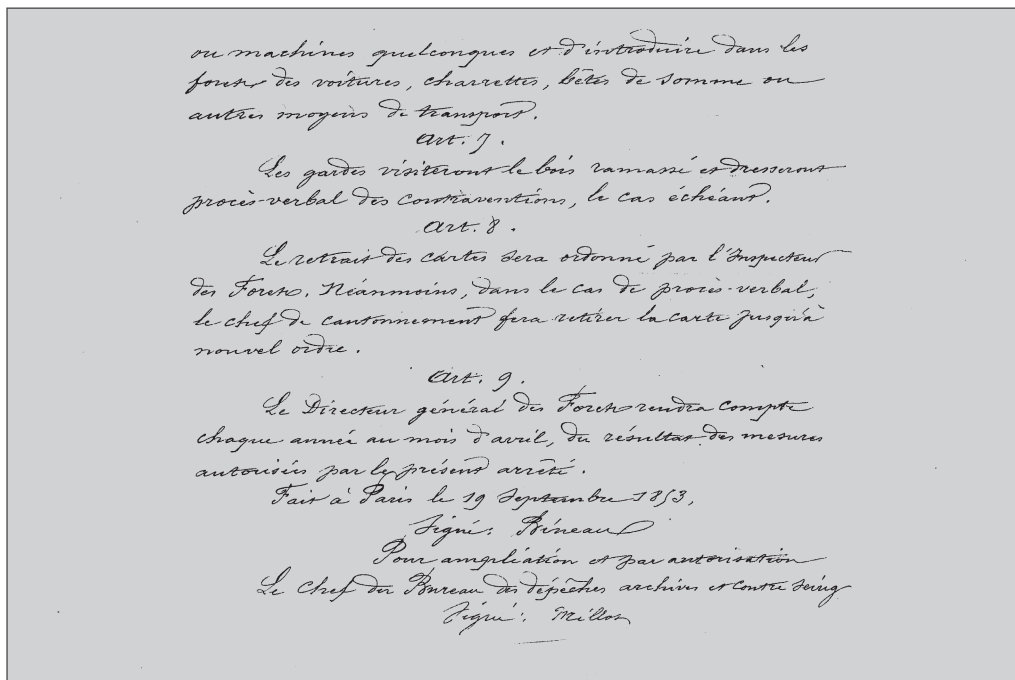 ou machines quelconques et d'introduire dans les
forets des voitures, charrettes, bêtes de somme ou
autres moyens de transport.
Art. 7.
Les gardes visiteront le bois ramassé et dresseront
procès-verbal des contraventions, le cas échéant.
Art. 8.
Le retrait des cartes sera ordonné par l'Inspecteur
des Forets. Néanmoins, dans le cas de procès-verbal,
le chef de cantonnement fera retirer la carte jusqu'à
nouvel ordre.
Art. 9.
Le Directeur général des Forets rendra compte
chaque année au mois d'avril, du résultat des mesures
autorisées par le présent arrêté.
Fait à Paris le 19 Septembre 1853,
Signé: Bineau
Pour ampliation et par autorisation
Le Chef du Bureau des dépêches archives et contre seing
Signé: Millot